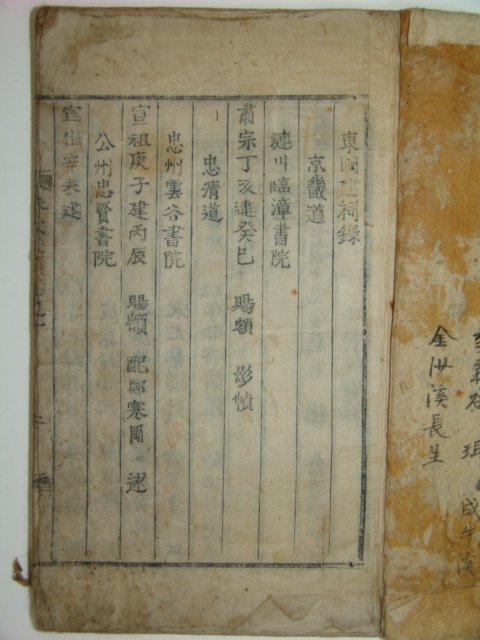 東國建祠錄
京畿道
漣川臨漳書院
肅宗丁亥建癸巳 賜額 影幀
忠淸道
忠州雲谷書院
宣祖庚子建丙辰 賜額 配鄭寒岡 逑
公州忠賢書院
宣祖辛未建
金沙溪長生
成牛溪